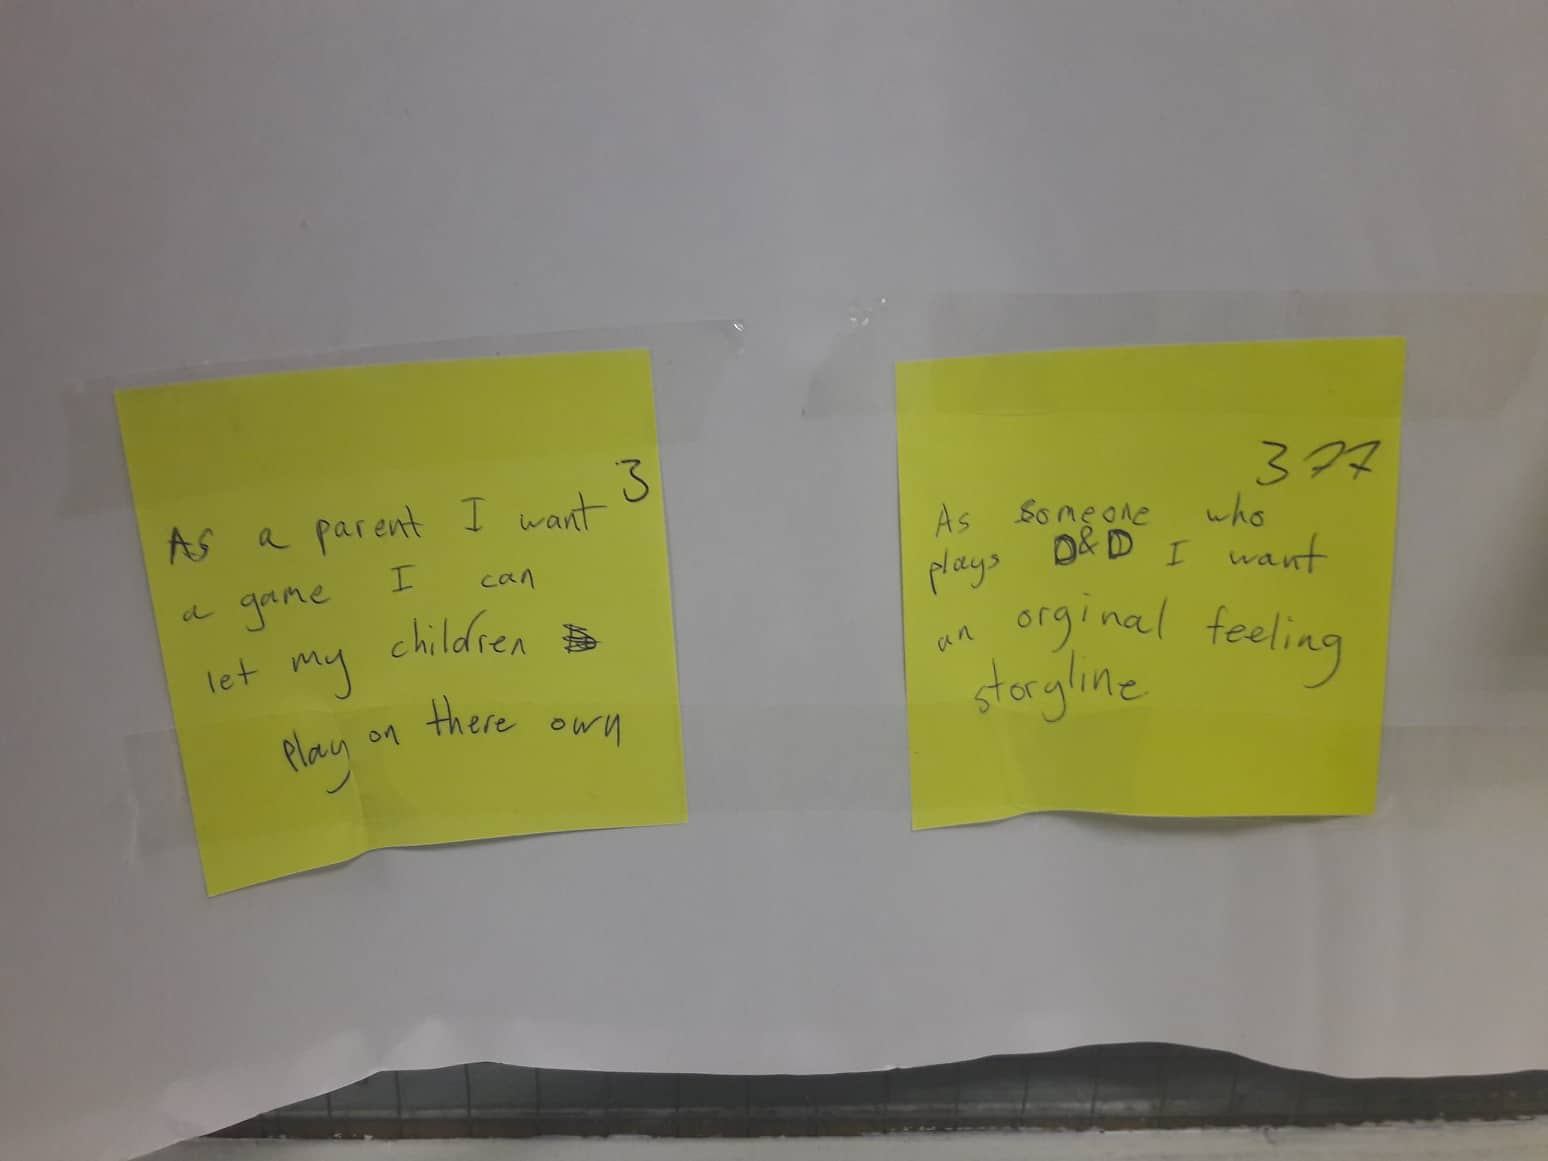 3
As a parent I want
a game I can
let my children
play on there own
377
As someone who
plays D&D I want
an orginal feeling
storyline